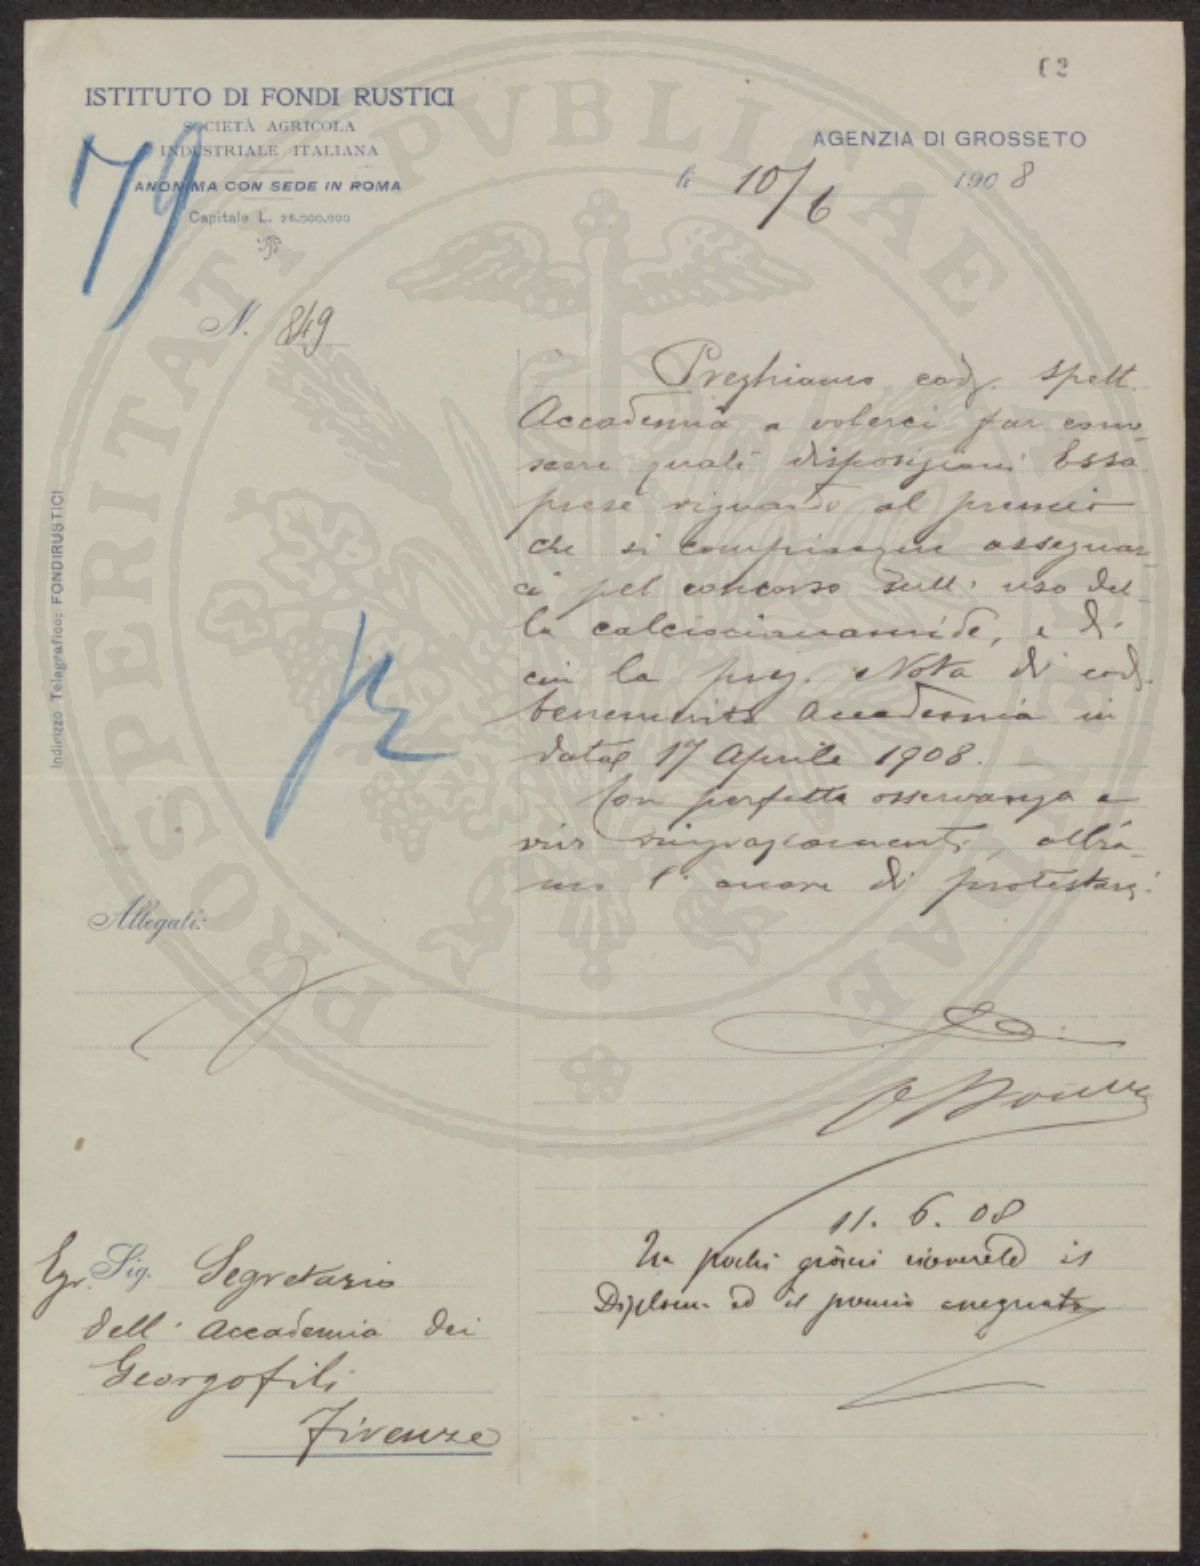 62
ISTITUTO DI FONDI RUSTICI
SOCIETÀ AGRICOLA
INDUSTRIALE ITALIANA
ANONIMA CON SEDE IN ROMA
Capitale L. 25.000.000
79
AGENZIA DI GROSSETO
li 10/6 1908
N. 849
Indirizzo Telegrafico: FONDIRUSTICI
Preghiamo cod. Spett.
Accademia a volerci far cono-
scere quali disposizioni Essa
prese riguardo al premio
che si compiacque assegnar-
ci pel concorso sull' uso del-
la calciocianamide, e di
cui la preg. Nota di cod.
benemerita Accademia in
data 17 Aprile 1908.
Con perfetta osservanza e
vivi ringraziamenti, abbia-
mo l' onore di protestarci
Allegati:
11. 6. 08
Tra pochi giorni riceverete il
Diploma ed il premio assegnato
Egr. Sig. Segretario
dell' Accademia dei
Georgofili
Firenze
PROSPERITATI PVBLICAE AVGENDAE